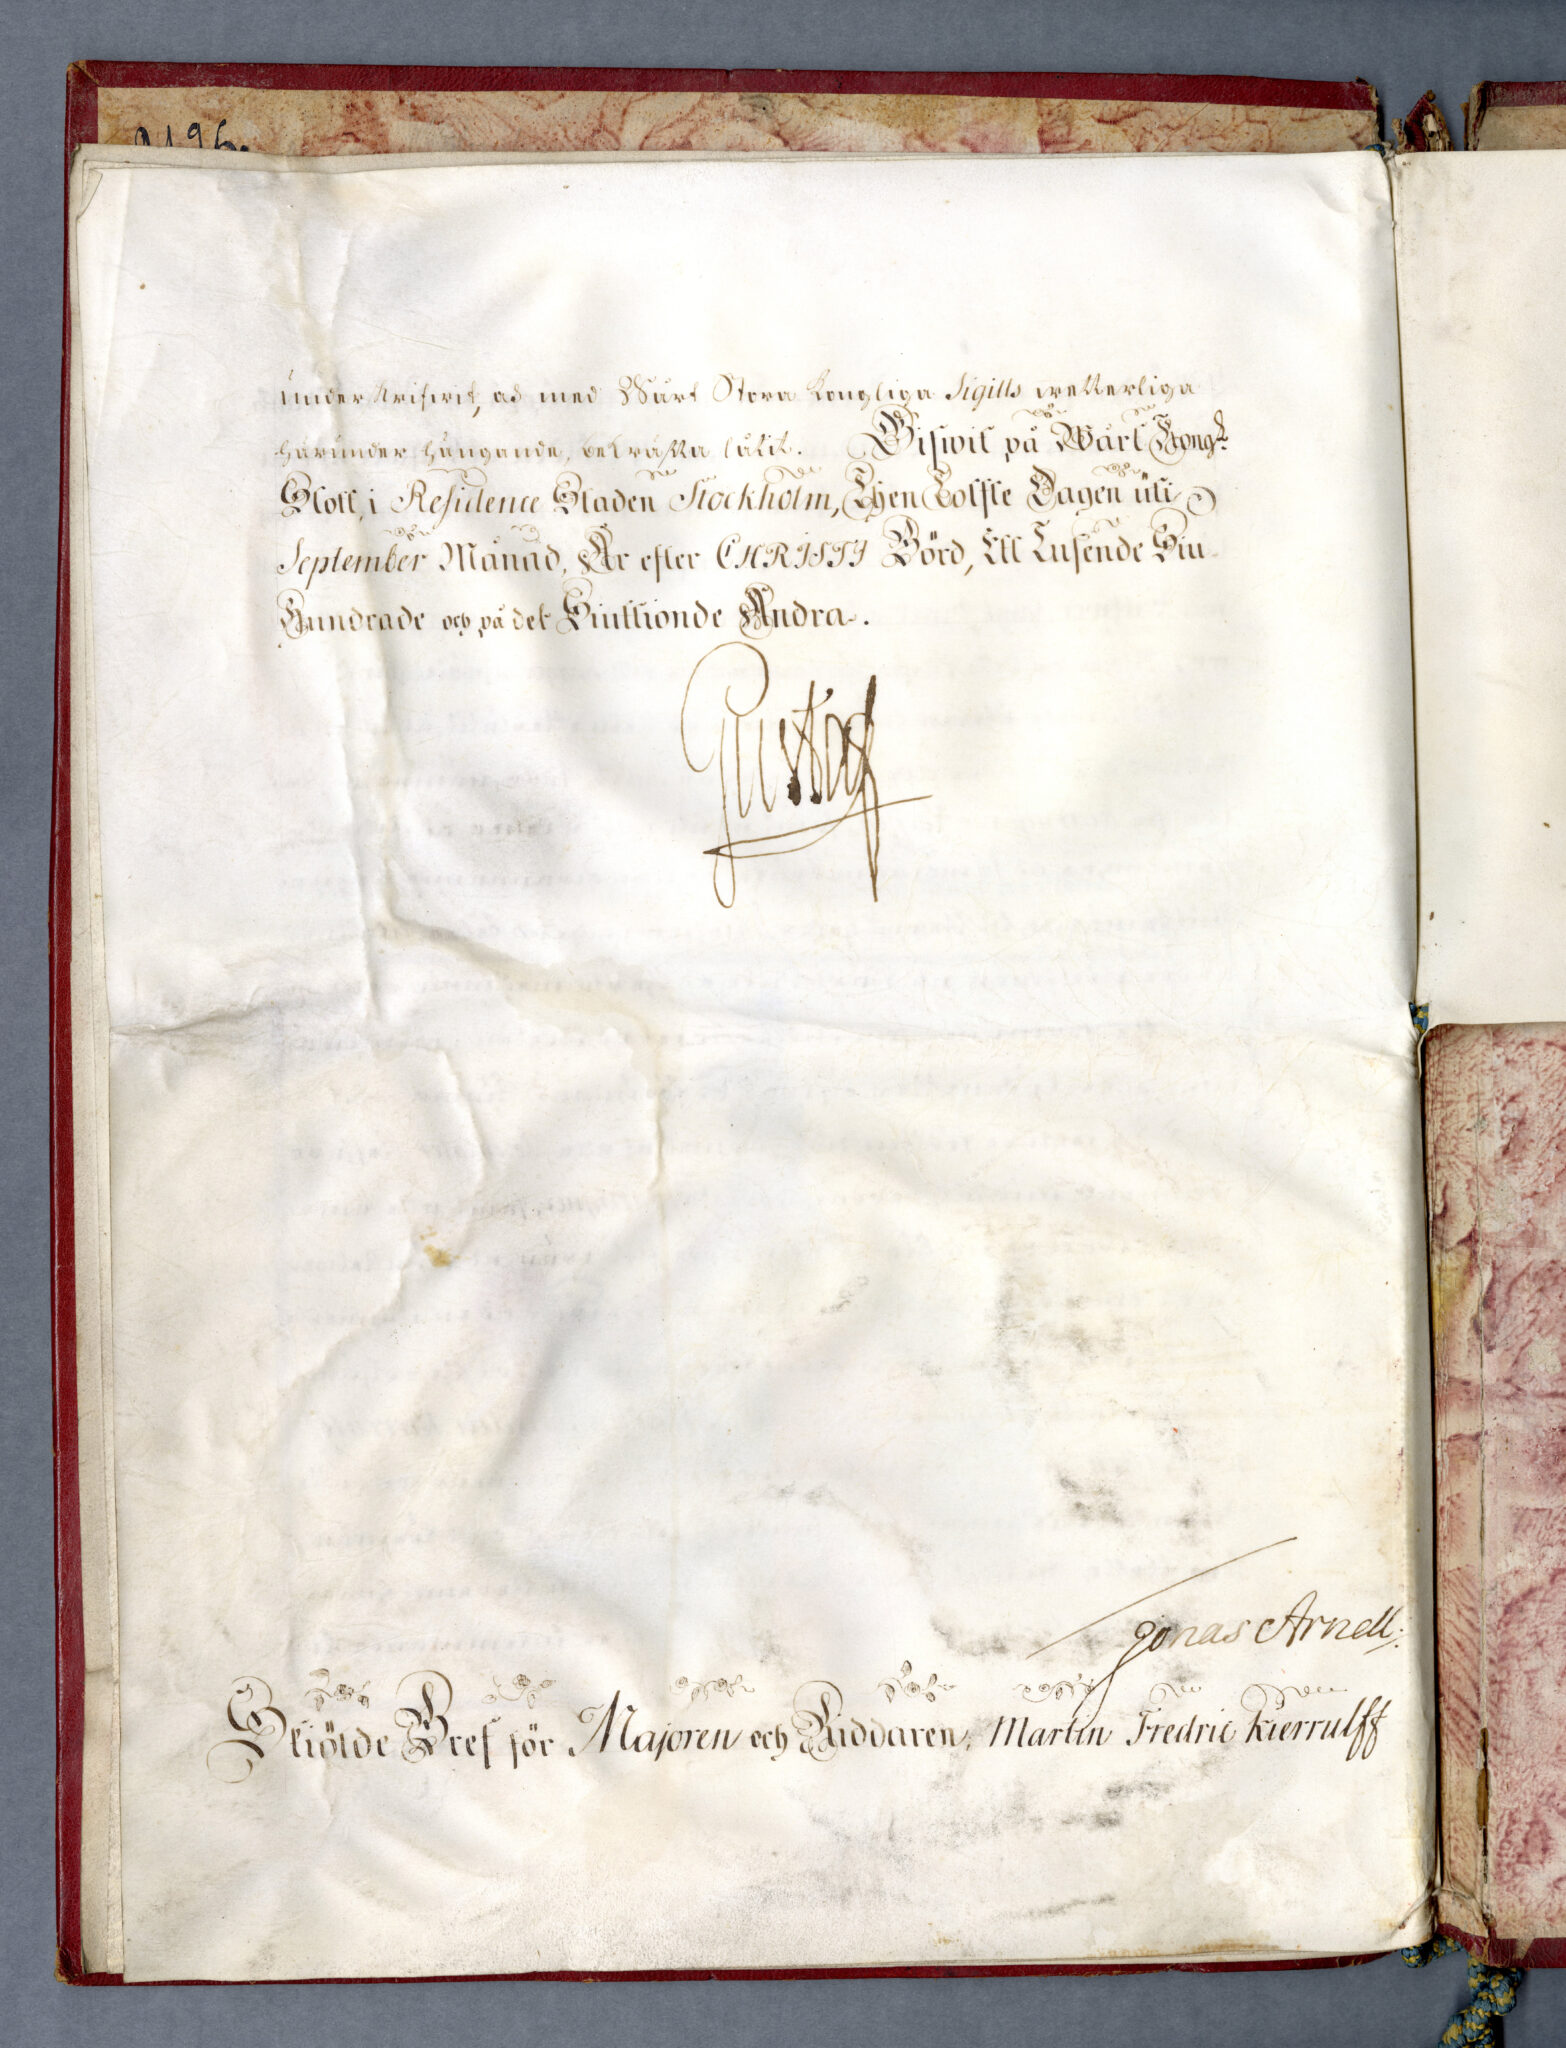 2196.
underskrifwit, och med Wårt Stora Kongliga Sigills wetterliga
härunder hängande, bekräfta låtit. Gifwit på Wårt Kongl.
Slott i Residence Staden Stockholm, Then Tolfte Dagen uti
September Månad, År efter CHRISTI Börd, Ett Tusende Siu
Hundrade och på det Siuttionde Andra.
Gustaf
Jonas Arnell.
Skiölde Bref för Majoren och Riddaren, Martin Fredric Kierrulff